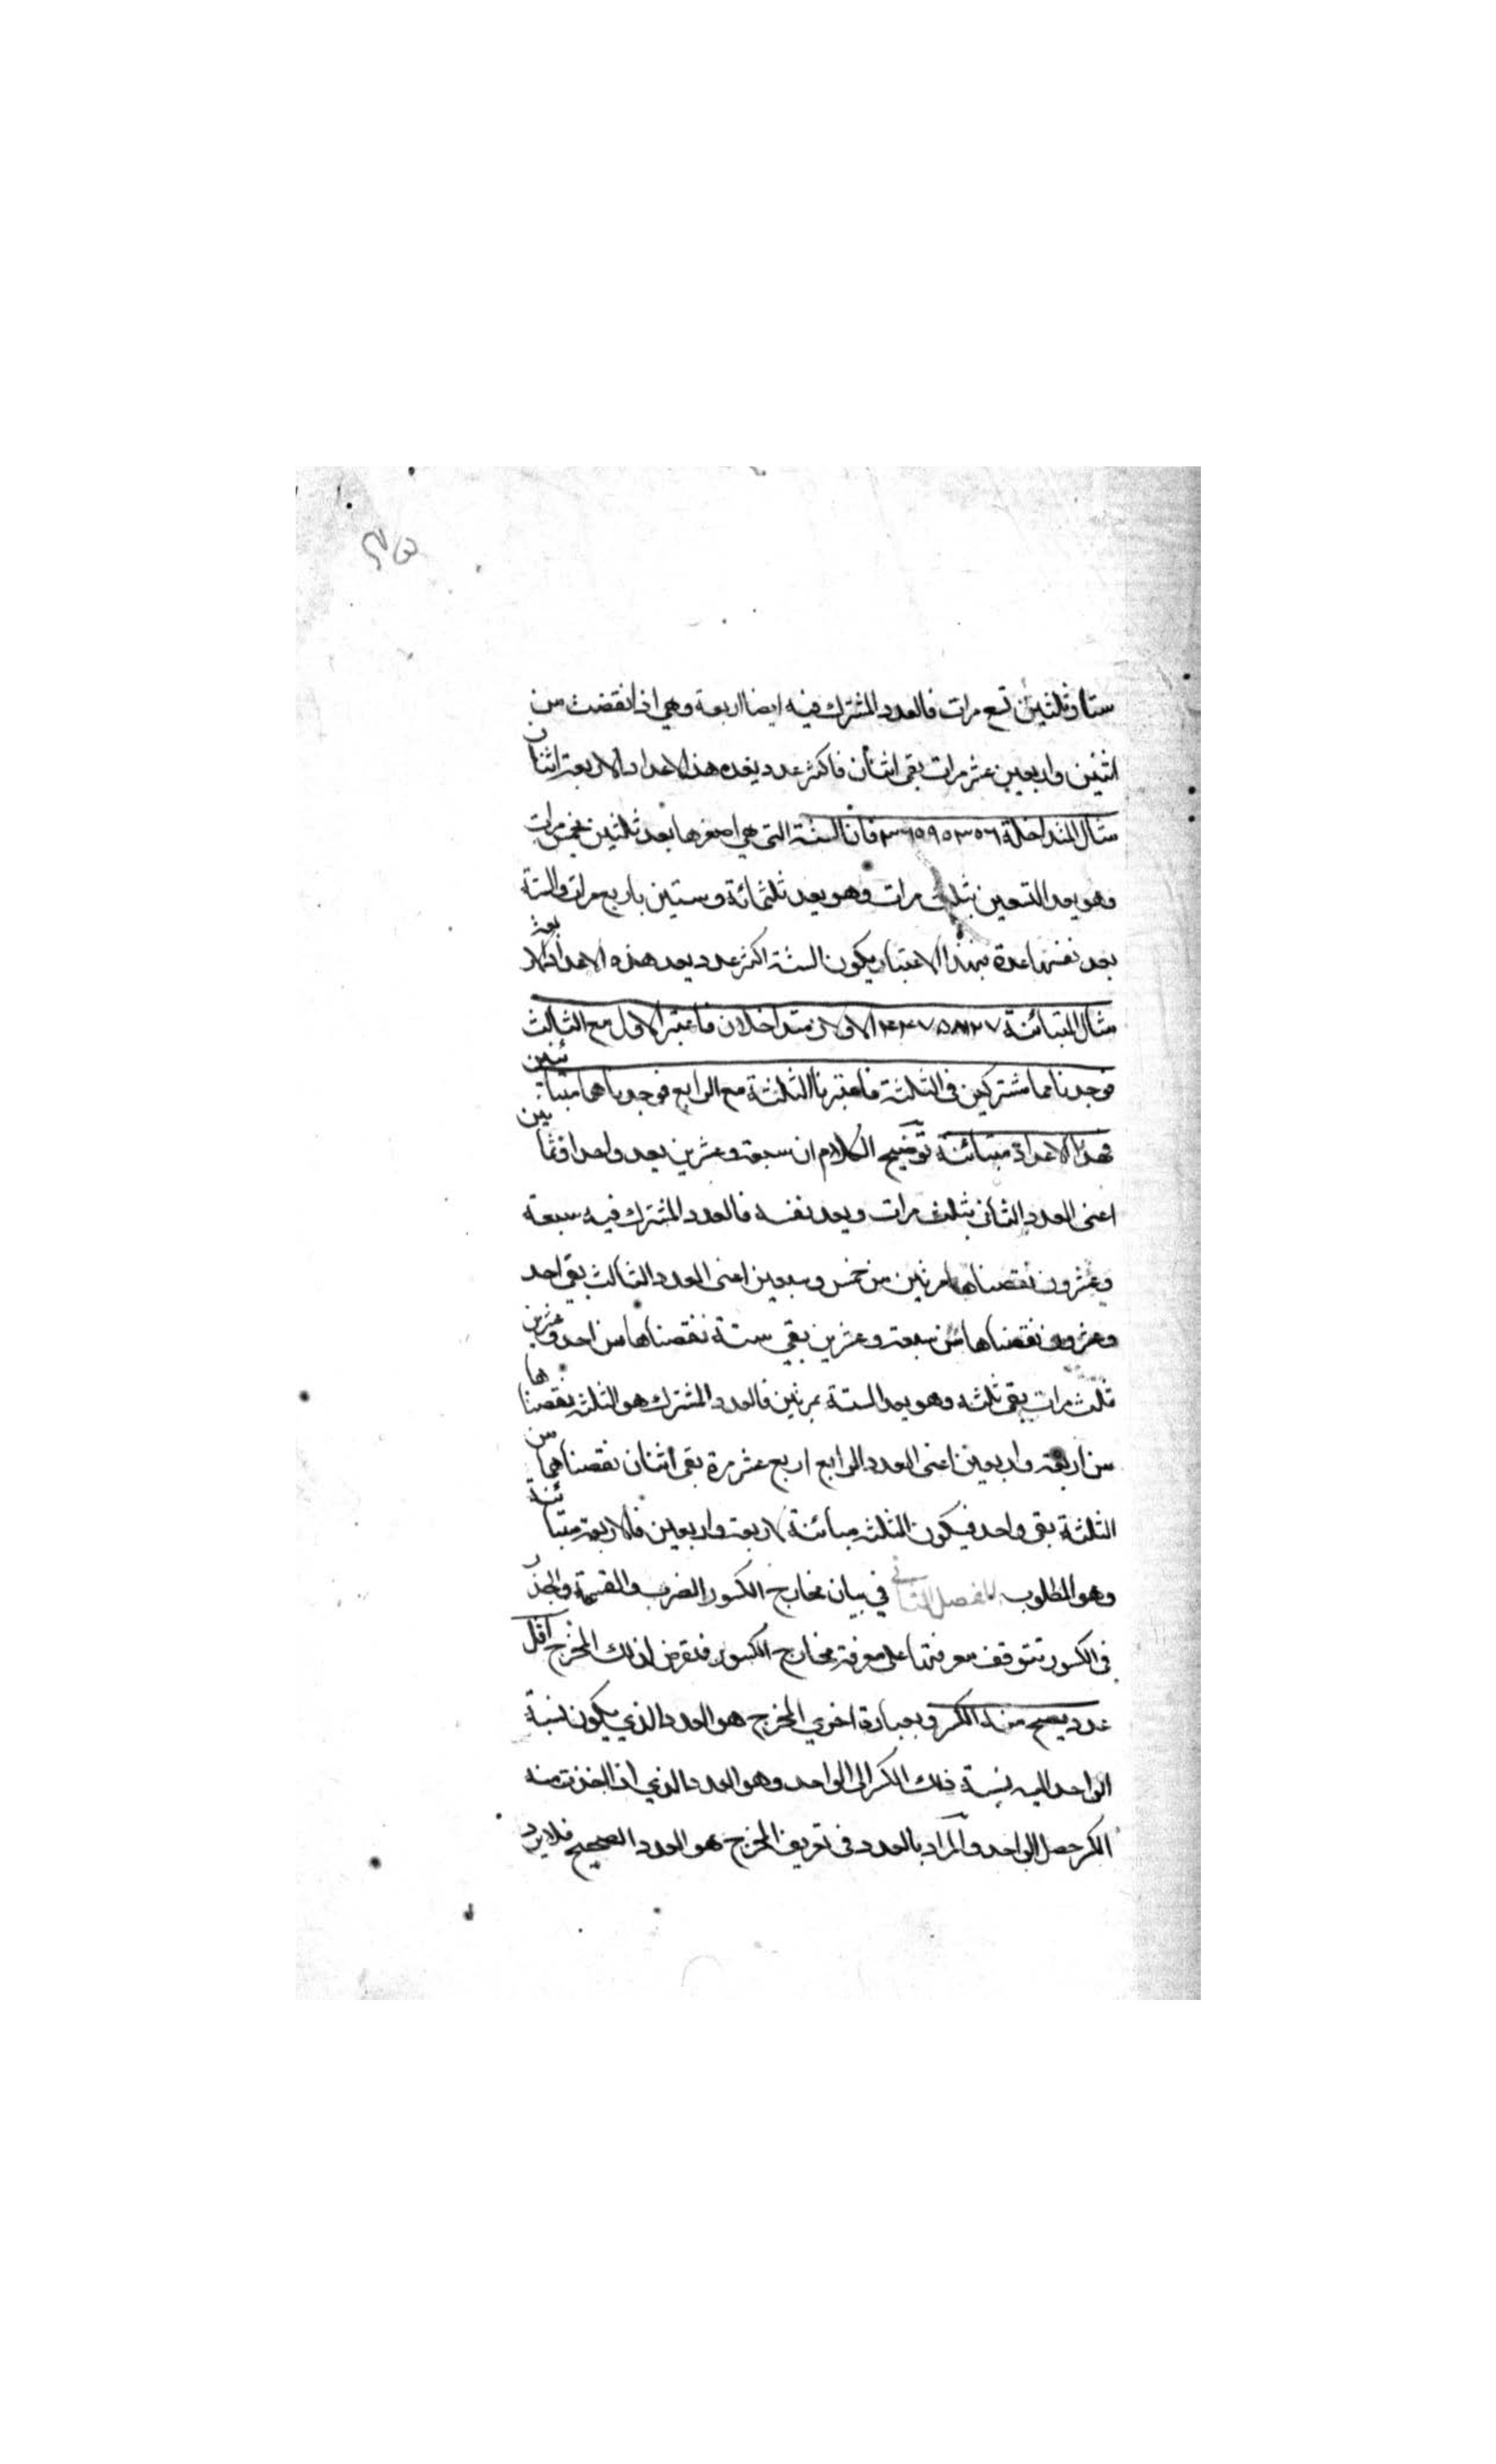 ستا وثلثين تسع مرات فالعدد المشترك فيه ايضا اربعة وهي اذا نقصت من
اثنين واربعين عشر مرات بقى اثنان فاكثر عدد يعده هذا الاعداد الاربعة اثنان
مثال المتداخلة ٦ ٣٠ ٩٠ ٣٦٠ فان الستة التي هي اصغرها يعد ثلثين بخمس مرات
وهو يعد التسعين بثلث مرات وهو يعد ثلثمائة وستين باربع مرات والستة
يعد نفسها عدة فبهذا الاعتبار يكون الستة اكثر عدد يعد هذه الاعداد الاربعة
مثال المتبائنة ٢٧ ٨١ ٧٥ ٤٤ الاولان متداخلان فاعتبر الاول مع الثالث
فوجدناهما مشتركين في الثلثة فاعتبرنا الثلثة مع الرابع فوجدناهما متبائنين
فهذا الاعداد متبائنة توضيح الكلام ان سبعة وعشرين يعد واحدا وثمانين
اعنى العدد الثانى بثلث مرات ويعد نفسه فالعدد المشترك فيه سبعة
وعشرون نقصناها مرتين من خمس وسبعين اعنى العدد الثالث بقى احد
وعشرون نقصناها من سبعة وعشرين بقي ستة نقصناها من احد وعشرين
ثلث مرات بقى ثلثه وهو يعد الستة بمرتين فالعدد المشترك هو الثلثه نقصناها
من اربعة واربعين اعنى العدد الرابع اربع عشر مرة بقى اثنان نقصناهما من
الثلثة بقى واحد فيكون الثلثه مبائنة لاربعة واربعين فالاربعة متبائنة
وهو المطلوب الفصل الثاني في بيان مخارج الكسور الضرب والقسمة والجذر
في الكسور تتوقف معرفتها على معرفة مخارج الكسور فنقرض لذلك المخرج اقل
عدد يصح منه الكسر وبعبارة اخرى المخرج هو العدد الذي يكون نسبة
الواحد اليه نسبة ذلك الكسر الى الواحد وهو العدد الذي اذا اخذت منه
الكسر حصل الواحد والمراد بالعدد في تعريف المخرج هو العدد الصحيح فلا يرد